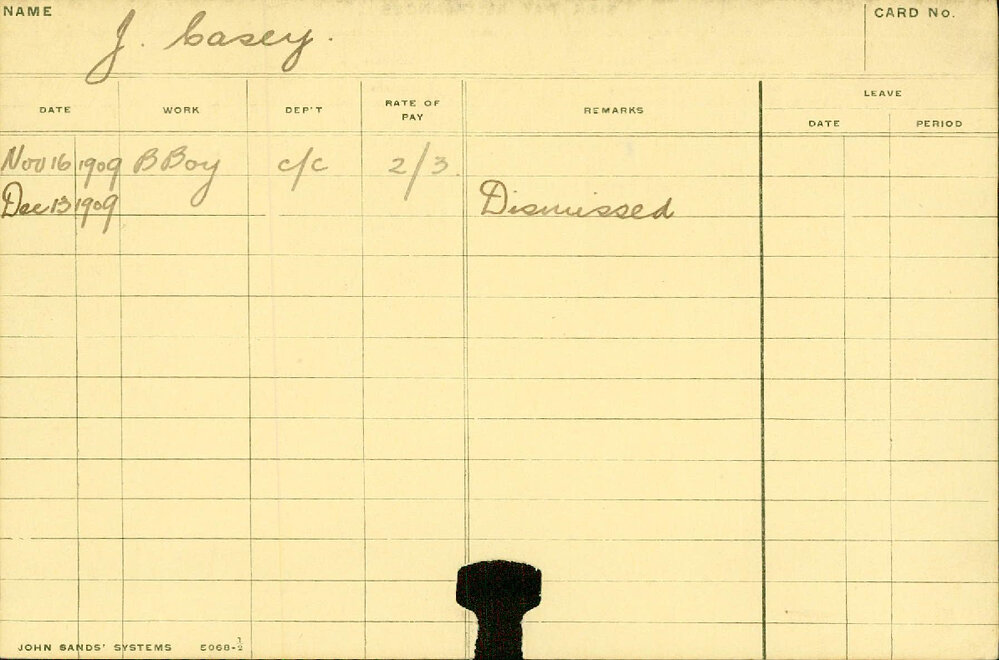 NAME J. Casey. CARD No.
DATE WORK DEP'T RATE OF PAY REMARKS LEAVE
DATE PERIOD
Nov 16 1909 B Boy c/c 2/3.
Dec 13 1909 Dismissed
JOHN SANDS' SYSTEMS 5068-½